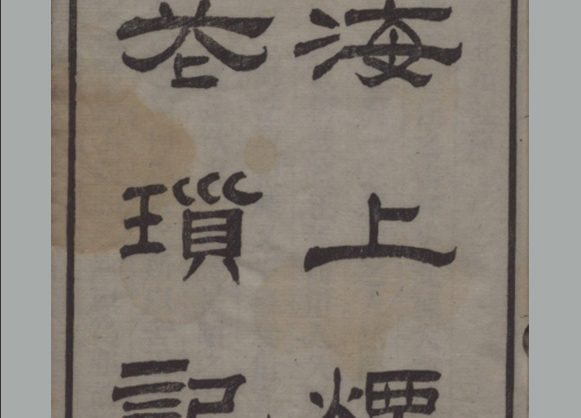 海上煙
花瑣記